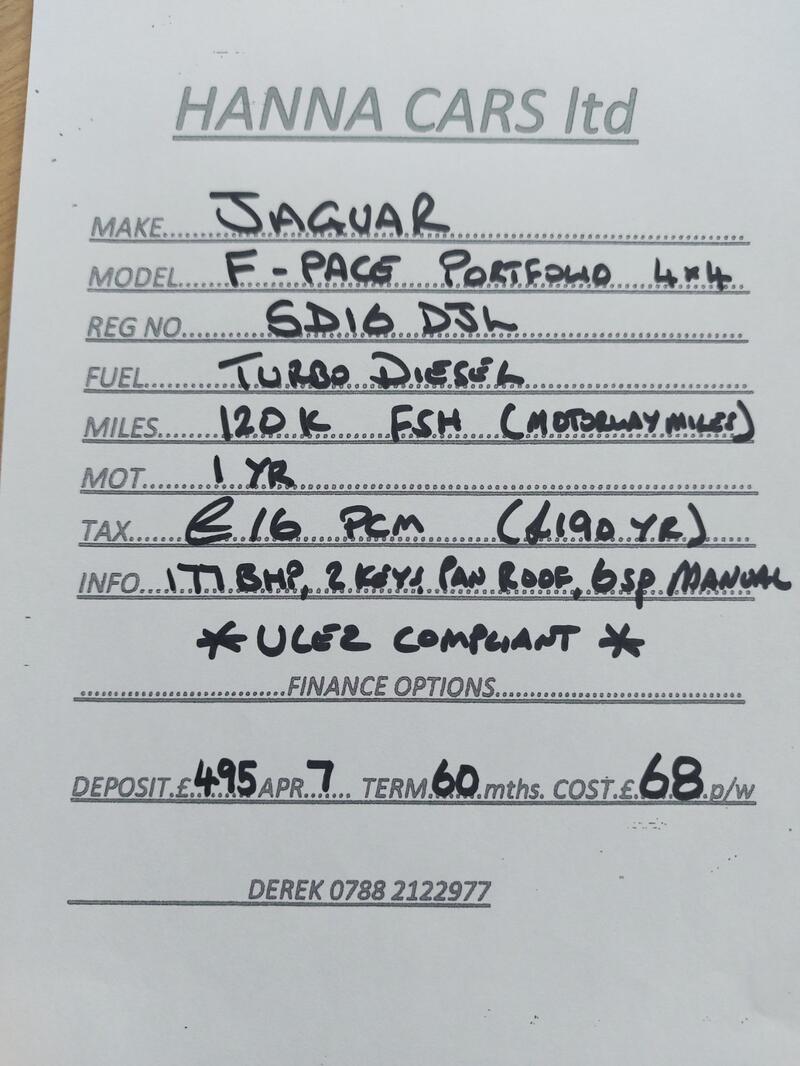 HANNA CARS ltd
MAKE......JAGUAR
MODEL......F-PACE PORTFOLIO 4x4
REG NO......SD16 DJL
FUEL......TURBO DIESEL
MILES......120K FSH (MOTORWAY MILES)
MOT......1 YR
TAX......£16 PCM (£190 YR)
INFO....177 BHP, 2 KEYS, PAN ROOF, 6SP MANUAL
* ULEZ COMPLIANT *
......FINANCE OPTIONS......
DEPOSIT.£495 APR..7... TERM.60.mths. COST.£.68.p/w
DEREK 0788 2122977